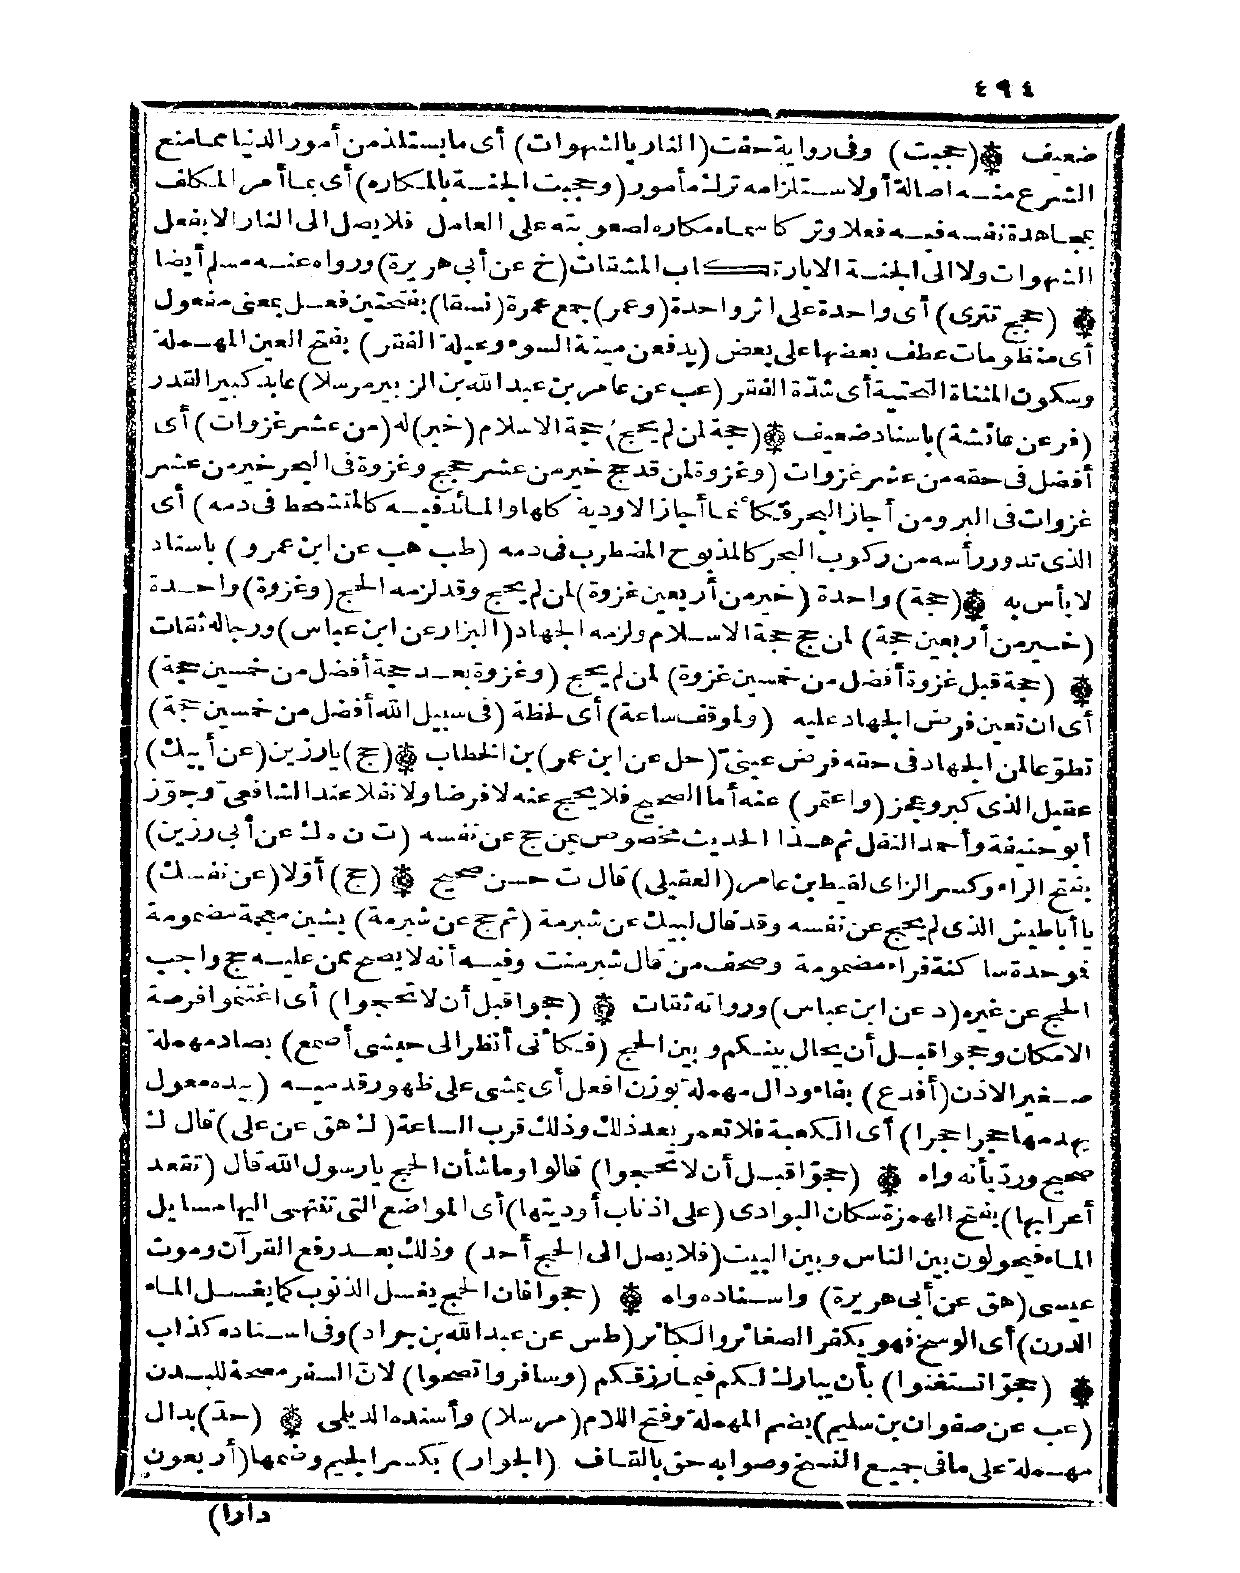 ٤٩٤
ضعيف ۞ (حجبت) وفى رواية حفت (النار بالشهوات) أى ما يستلذ من أمور الدنيا مما منع
الشرع منه اصالة أو لاستلزامه ترك مأمور (وحجبت الجنة بالمكاره) أى بما أمر المكلف
بمجاهدة نفسه فيه فعلا وتركا سماه مكاره لصعوبته على العامل فلا يصل الى النار الا بفعل
الشهوات ولا الى الجنة الا بارتكاب المشقات (خ عن أبى هريرة) ورواه عنه مسلم أيضا
۞ (حجج تترى) أى واحدة على اثر واحدة (وعمر) جمع عمرة (نسقا) بفتحتين فعل بمعنى مفعول
أى منظومات عطف بعضها على بعض (يدفعن ميتة السوء وعيلة الفقر) بفتح العين المهملة
وسكون المثناة التحتية أى شدّة الفقر (عب عن عامر بن عبد الله بن الزبير مرسلا) عابد كبير القدر
(فر عن عائشة) باسناد ضعيف ۞ (حجة لمن لم يحج) حجة الاسلام (خير) له (من عشر غزوات) أى
أفضل فى حقه من عشر غزوات (وغزوة لمن قد حج خير من عشر حجج وغزوة فى البحر خير من عشر
غزوات فى البر ومن أجاز البحر فكأنما أجاز الاودية كلها والمائد فيه كالمتشحط فى دمه) أى
الذى تدور رأسه من ركوب البحر كالمذبوح المضطرب فى دمه (طب هب عن ابن عمرو) باسناد
لا بأس به ۞ (حجة) واحدة (خير من أربعين غزوة) لمن لم يحج وقد لزمه الحج (وغزوة) واحدة
(خير من أربعين حجة) لمن حج حجة الاسلام ولزمه الجهاد (البزار عن ابن عباس) ورجاله ثقات
۞ (حجة قبل غزوة أفضل من خمسين غزوة) لمن لم يحج (وغزوة بعد حجة أفضل من خمسين حجة)
أى ان تعين فرض الجهاد عليه (ولموقف ساعة) أى لحظة (فى سبيل الله أفضل من خمسين حجة)
تطوّعا لمن الجهاد فى حقه فرض عينىّ (حل عن ابن عمر) بن الخطاب ۞ (حج) يا رزين (عن أبيك)
عقيل الذى كبر وعجز (واعتمر) عنه أما الصحيح فلا يحج عنه لا فرضا ولا نفلا عند الشافعىّ وجوّز
أبو حنيفة وأحمد النفل ثم هذا الحديث مخصوص بمن حج عن نفسه (ت ن ه ك عن أبى رزين)
بفتح الراء وكسر الزاى لقيط بن عامر (العقيلى) قال ت حسن صحيح ۞ (حج) أوّلا (عن نفسك)
يا أبا طيش الذى لم يحج عن نفسه وقد قال لبيك عن شبرمة (ثم حج عن شبرمة) بشين معجمة مضمومة
فوحدة ساكنة فراء مضمومة وصحف من قال شبرمنت وفيه أنه لا يصح ممن عليه حج واجب
الحج عن غيره (د عن ابن عباس) ورواته ثقات ۞ (حجوا قبل أن لا تحجوا) أى اغتنموا فرصة
الامكان وحجوا قبل أن يحال بينكم وبين الحج (فكأنى أنظر الى حبشى أصمع) بصاد مهملة
صغير الاذن (أفدع) بفاء ودال مهملة بوزن افعل أى يمشى على ظهور قدميه (بيده معول
يهدمها حجرا حجرا) أى الكعبة فلا تعمر بعد ذلك وذلك قرب الساعة (ك هق عن على) قال ك
صحيح وردّ بأنه واه ۞ (حجوّا قبل أن لا تحجوا) قالوا وما شأن الحج يا رسول الله قال (تقعد
أعرابها) بفتح الهمزة سكان البوادى (على اذناب أوديتها) أى المواضع التى تنتهى اليها مسايل
الماء فيحولون بين الناس وبين البيت (فلا يصل الى الحج أحد) وذلك بعد رفع القرآن وموت
عيسى (هق عن أبى هريرة) واسناده واه ۞ (حجوا فان الحج يغسل الذنوب كما يغسل الماء
الدرن) أى الوسخ فهو يكفر الصغائر والكبائر (طس عن عبد الله بن جراد) وفى اسناده كذاب
۞ (حجوّا تستغنوا) بأن يبارك لكم فيما رزقكم (وسافروا تصحوا) لانّ السفر مصحة للبدن
(عب عن صفوان بن سليم) بضم المهملة وفتح اللام (مرسلا) وأسنده الديلمى ۞ (حدّ) بدال
مهملة على ما فى جميع النسخ وصوابه حق بالقاف (الجوار) بكسر الجيم وضمها (أربعون
دارا)